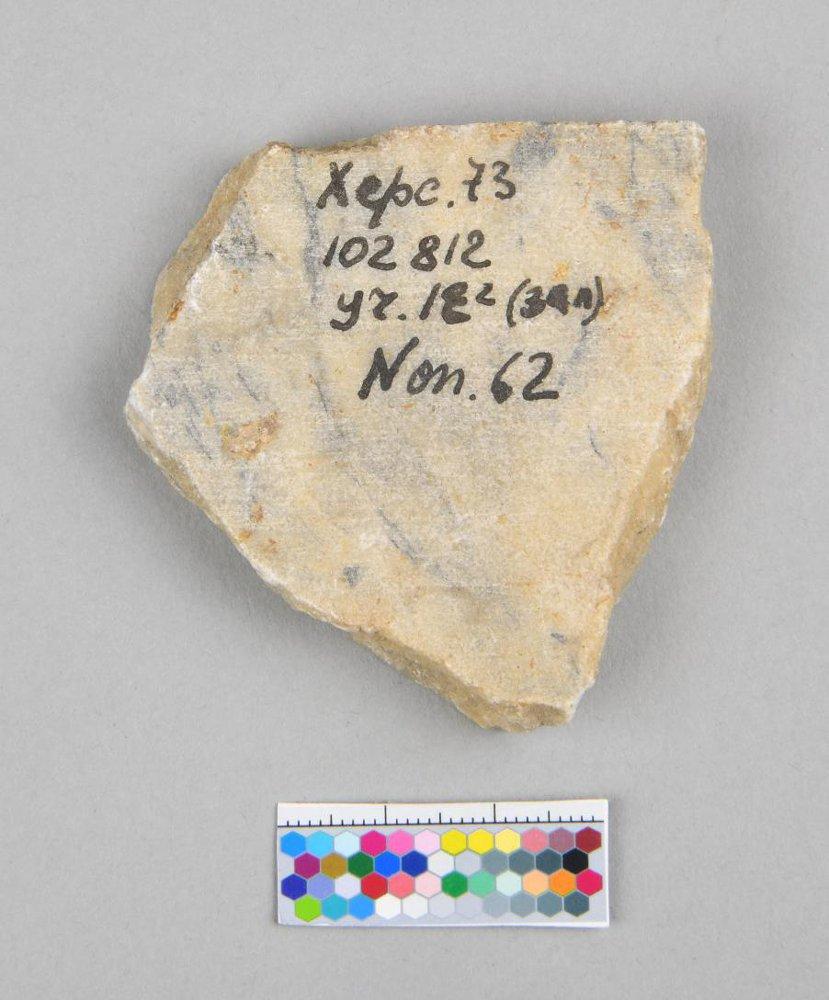 Херс. 73
102 812
уч. 1Е² (зал)
Nоп. 62